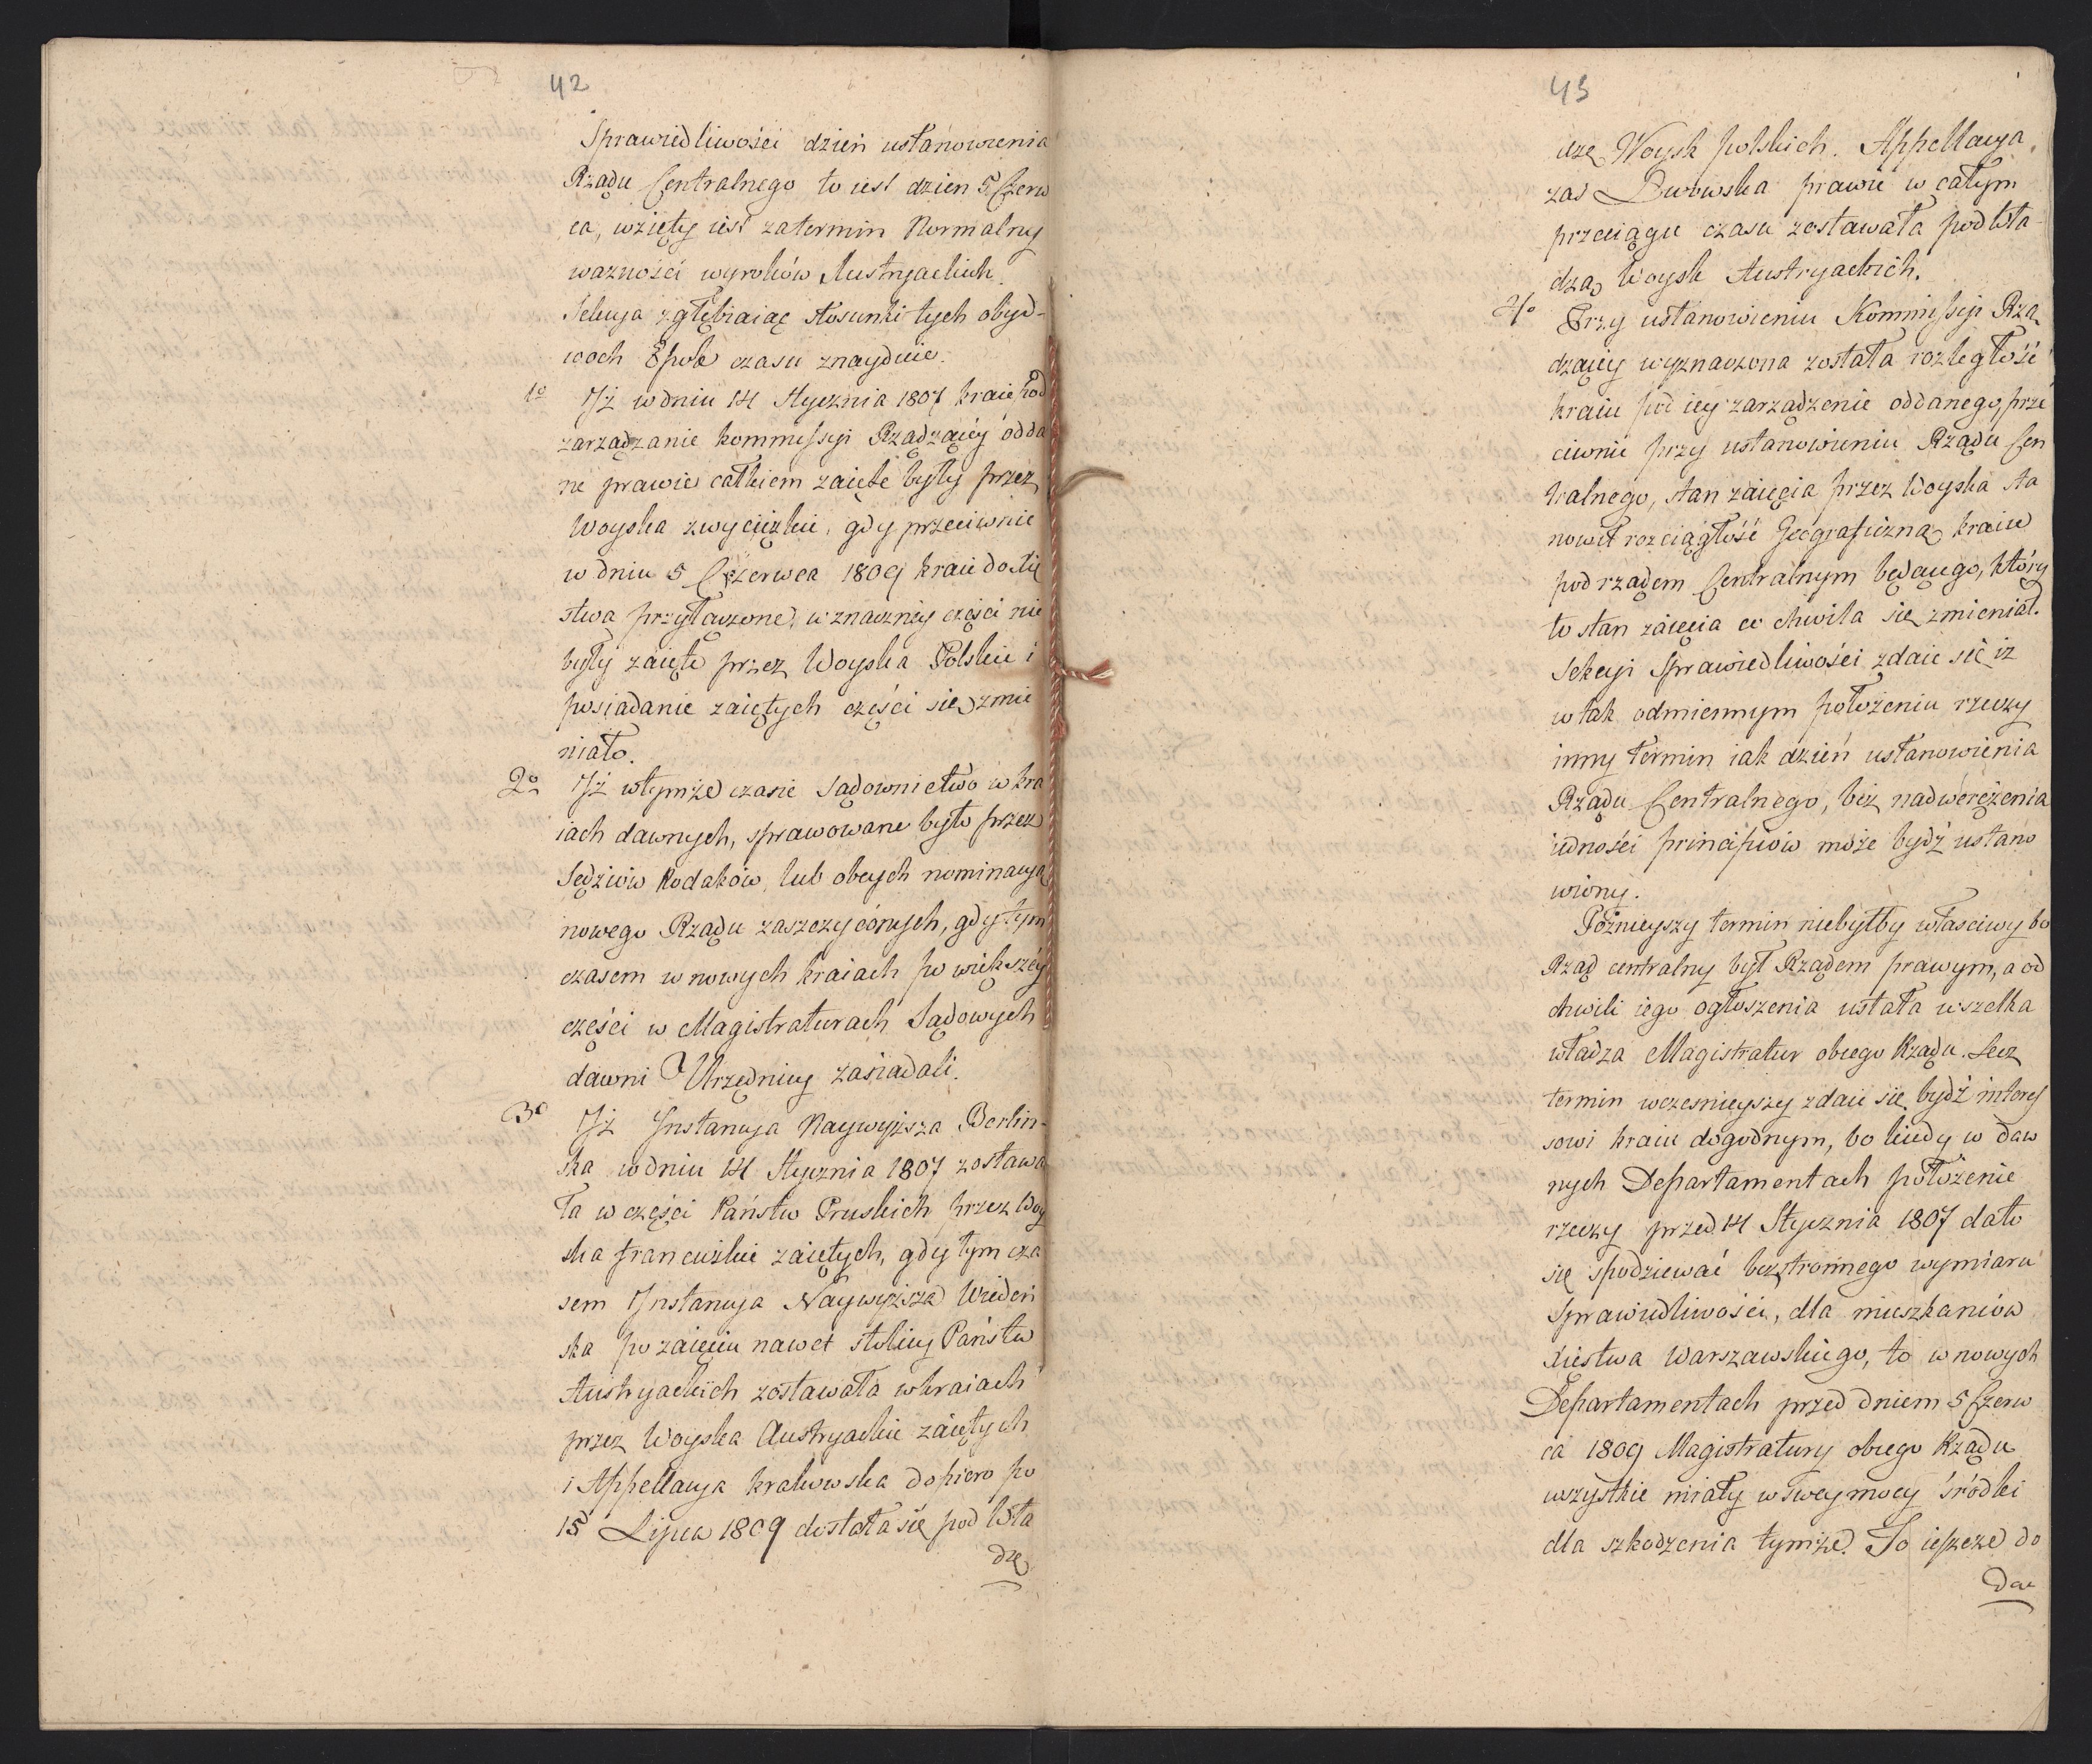 42
Sprawiedliwości dzień ustanowienia
Rządu Centralnego to iest dzien 5 Czerw
ca, wzięty iest zatermin Normalny
wazności wyroków Austryackich.
Sekcya zgłębiaiąc stosunki tych obyd-
woch Epok czasu znayduie.
1o Iż w dniu 14 Stycznia 1807 kraie pod
zarządzanie kommissyi Rządzącéy odda
ne prawie całkiem zaięte były przez
Woyska zwycięzkie, gdy przeciwnie
w dniu 5 Czerwca 1809 kraie do Xię
stwa przyłączone, w znacznéy części nie
były zaięte przez Woyska Polskie i
posiadanie zaiętych części się zmie
niało.
2o Iż wtymże czasie Sądownictwo w kra
iach dawnych, sprawowane było przez
Sędziów Rodaków, lub obcych nominacyą
nowego Rządu zaszczyconych, gdy tym
czasem w nowych kraiach po większéy
części w Magistraturach Sądowych
dawni Urzędnicy zasiadali.
3o Iż Instancya Naywyższa Berlin-
ska w dniu 14 Stycznia 1807 zostawa
ła w części Państw Pruskich przez Woy
ska francuzkie zaiętych, gdy tym cza
sem Instancya Naywyższa Wiedeń
ska po zaięciu nawet stolicy Państw
Austryackich zostawała w kraiach
przez Woyska Austryackie zaiętych
i Appellacya krakowska dopiero po
15 Lipca 1809 dostała się pod Wła
dzę
43
dzę Woysk polskich. Appellacya
zaś Lwowska prawie w całym
przeciągu czasu zostawała pod Wła-
dzą Woysk Austryackich.
4o Przy ustanowieniu Kommissyi Rzą
dzącéy wyznaczona została rozległość
kraiu pod iey zarządzenie oddanego, prze
ciwnie przy ustanowieniu Rządu Cen
tralnego, stan zaięcia przez Woyska sta
nowił rozciągłość Geograficzną kraiu
pod rządem Centralnym będącego, który
to stan zaięcia co chwila się zmieniał.
Sekcyi Sprawiedliwości zdaie się iż
w tak odmiennym położeniu rzeczy
inny termin iak dzień ustanowienia
Rządu Centralnego, bez nadwerężenia
iedności principiów może bydź ustano
wiony.
Późnieyszy termin niebyłby właściwy bo
Rząd centralny był Rządem prawym, a od
chwili iego ogłoszenia ustała wszelka
władza Magistratur obcego Rządu. Lecz
termin wcześnieyszy zdaie się bydź interes
sowi kraiu dogodnym, bo kiedy w daw
nych Departamentach położenie
rzeczy przed 14 Stycznia 1807 dało
się spodziewać bezstronnego wymiaru
Sprawiedliwości, dla mieszkańców
Xięstwa Warszawskiego, to w nowych
Departamentach przed dniem 5 Czerw
ca 1809 Magistratury obcego Rządu
wszystkie miały w swey mocy śródki
dla szkodzenia tymże. To ieszcze do
dać